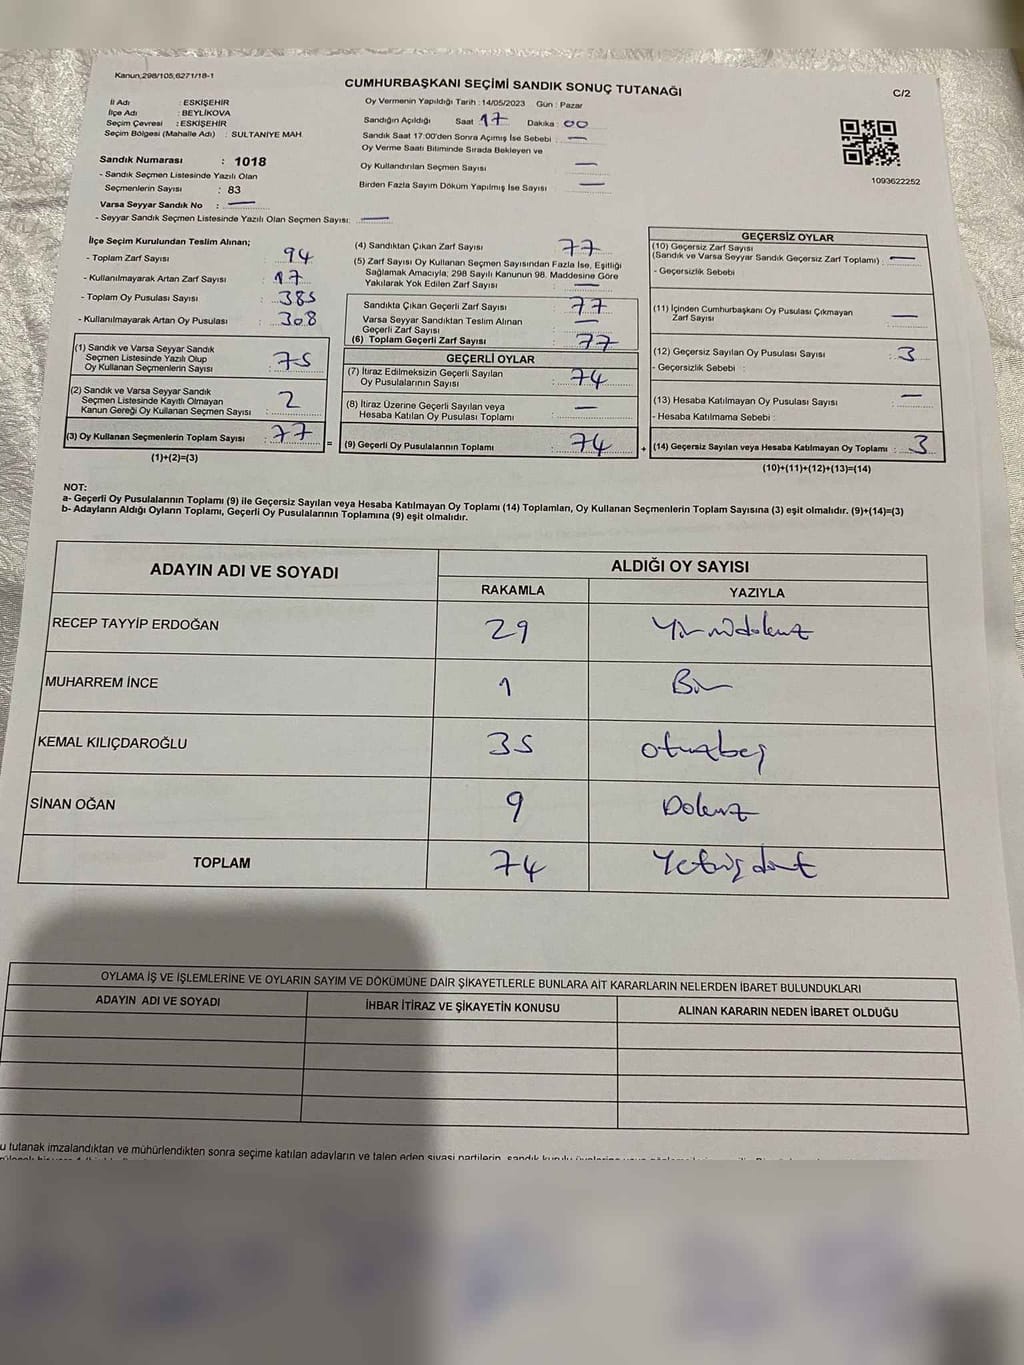 Kanun,298/105,6271/18-1
CUMHURBAŞKANI SEÇİMİ SANDIK SONUÇ TUTANAĞI
C/2
İl Adı : ESKİŞEHİR
İlçe Adı : BEYLİKOVA
Seçim Çevresi : ESKİŞEHİR
Seçim Bölgesi (Mahalle Adı) : SULTANİYE MAH.
Sandık Numarası : 1018
- Sandık Seçmen Listesinde Yazılı Olan
Seçmenlerin Sayısı : 83
Varsa Seyyar Sandık No : —
- Seyyar Sandık Seçmen Listesinde Yazılı Olan Seçmen Sayısı: —
Oy Vermenin Yapıldığı Tarih : 14/05/2023 Gün : Pazar
Sandığın Açıldığı Saat 17 Dakika : 00
Sandık Saat 17:00'den Sonra Açımış İse Sebebi : —
Oy Verme Saati Bitiminde Sırada Bekleyen ve
Oy Kullandırılan Seçmen Sayısı —
Birden Fazla Sayım Döküm Yapılmış İse Sayısı —
1093622252
İlçe Seçim Kurulundan Teslim Alınan;
- Toplam Zarf Sayısı : 94
- Kullanılmayarak Artan Zarf Sayısı : 17
- Toplam Oy Pusulası Sayısı : 385
- Kullanılmayarak Artan Oy Pusulası : 308
(1) Sandık ve Varsa Seyyar Sandık
Seçmen Listesinde Yazılı Olup
Oy Kullanan Seçmenlerin Sayısı : 75
(2) Sandık ve Varsa Seyyar Sandık
Seçmen Listesinde Kayıtlı Olmayan
Kanun Gereği Oy Kullanan Seçmen Sayısı : 2
(3) Oy Kullanan Seçmenlerin Toplam Sayısı : 77
(1)+(2)=(3)
=
(4) Sandıktan Çıkan Zarf Sayısı : 77
(5) Zarf Sayısı Oy Kullanan Seçmen Sayısından Fazla İse, Eşitliği
Sağlamak Amacıyla; 298 Sayılı Kanunun 98. Maddesine Göre
Yakılarak Yok Edilen Zarf Sayısı : —
Sandıkta Çıkan Geçerli Zarf Sayısı : 77
Varsa Seyyar Sandıktan Teslim Alınan
Geçerli Zarf Sayısı : —
(6) Toplam Geçerli Zarf Sayısı : 77
GEÇERLİ OYLAR
(7) İtiraz Edilmeksizin Geçerli Sayılan
Oy Pusulalarının Sayısı : 74
(8) İtiraz Üzerine Geçerli Sayılan veya
Hesaba Katılan Oy Pusulası Toplamı : —
(9) Geçerli Oy Pusulalarının Toplamı : 74
+
GEÇERSİZ OYLAR
(10) Geçersiz Zarf Sayısı
(Sandık ve Varsa Seyyar Sandık Geçersiz Zarf Toplamı) : —
- Geçersizlik Sebebi
(11) İçinden Cumhurbaşkanı Oy Pusulası Çıkmayan
Zarf Sayısı : —
(12) Geçersiz Sayılan Oy Pusulası Sayısı : 3
- Geçersizlik Sebebi :
(13) Hesaba Katılmayan Oy Pusulası Sayısı : —
- Hesaba Katılmama Sebebi :
(14) Geçersiz Sayılan veya Hesaba Katılmayan Oy Toplamı : 3
(10)+(11)+(12)+(13)=(14)
NOT:
a- Geçerli Oy Pusulalarının Toplamı (9) ile Geçersiz Sayılan veya Hesaba Katılmayan Oy Toplamı (14) Toplamları, Oy Kullanan Seçmenlerin Toplam Sayısına (3) eşit olmalıdır. (9)+(14)=(3)
b- Adayların Aldığı Oyların Toplamı, Geçerli Oy Pusulalarının Toplamına (9) eşit olmalıdır.
ADAYIN ADI VE SOYADI ALDIĞI OY SAYISI
RAKAMLA YAZIYLA
RECEP TAYYİP ERDOĞAN 29 Yirmidokuz
MUHARREM İNCE 1 Bir
KEMAL KILIÇDAROĞLU 35 otuzbeş
SİNAN OĞAN 9 Dokuz
TOPLAM 74 Yetmişdört
OYLAMA İŞ VE İŞLEMLERİNE VE OYLARIN SAYIM VE DÖKÜMÜNE DAİR ŞİKAYETLERLE BUNLARA AİT KARARLARIN NELERDEN İBARET BULUNDUKLARI
ADAYIN ADI VE SOYADI İHBAR İTİRAZ VE ŞİKAYETİN KONUSU ALINAN KARARIN NEDEN İBARET OLDUĞU
u tutanak imzalandıktan ve mühürlendikten sonra seçime katılan adayların ve talep eden siyasi partilerin, sandık kurulu